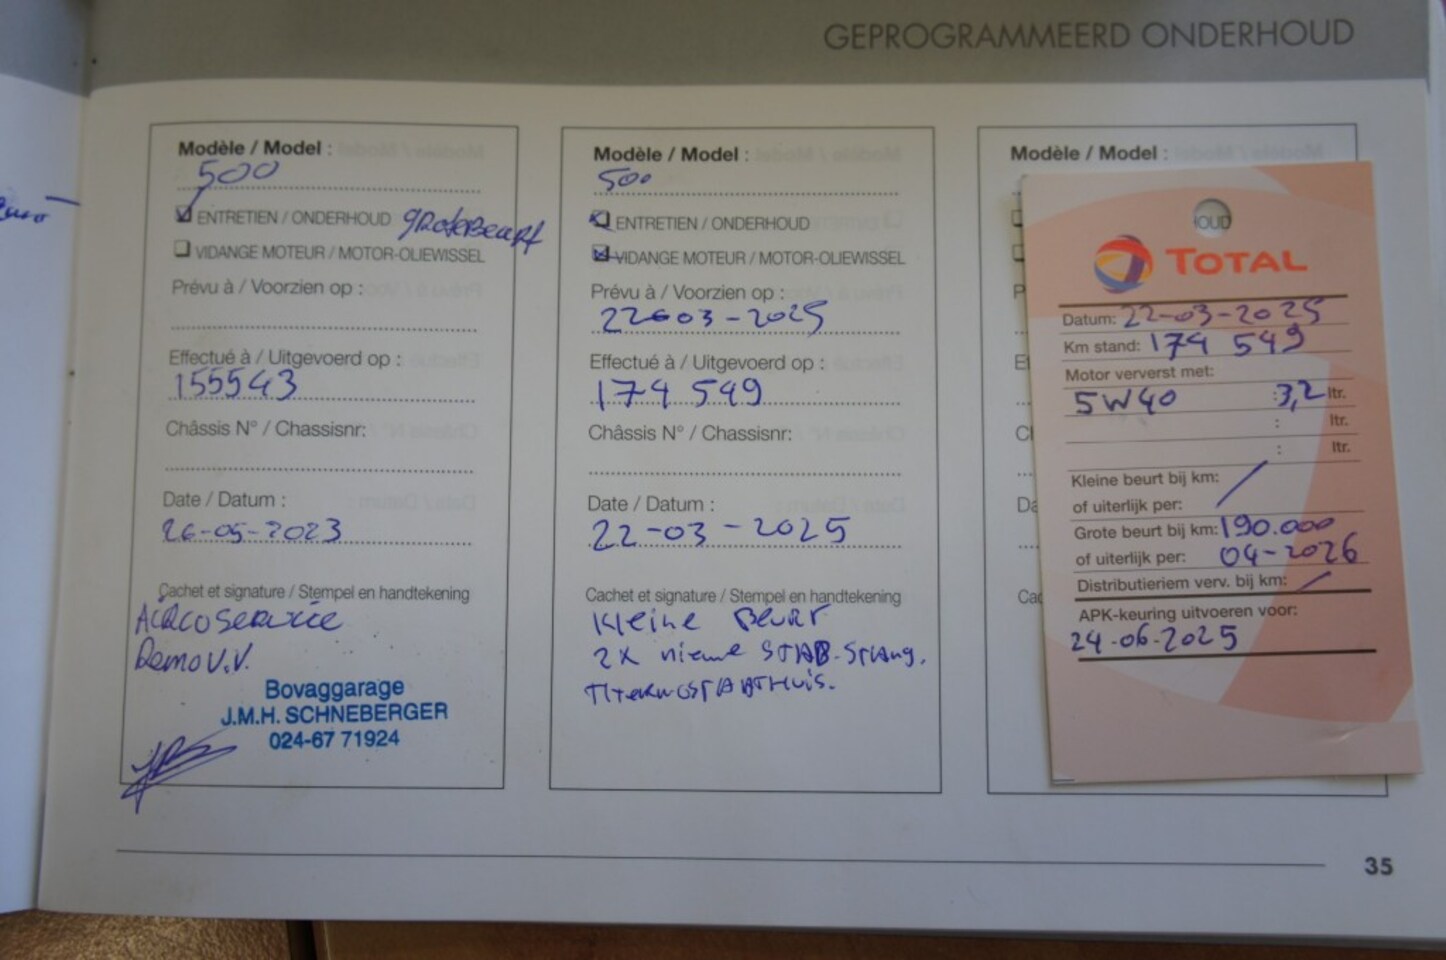 GEPROGRAMMEERD ONDERHOUD
Modèle / Model :
500
ENTRETIEN / ONDERHOUD grote Beurt
VIDANGE MOTEUR / MOTOR-OLIEWISSEL
Prévu à / Voorzien op :
Effectué à / Uitgevoerd op :
155543
Châssis N° / Chassisnr:
Date / Datum :
26-05-2023
Cachet et signature / Stempel en handtekening
Aircoservice
RemoV.V.
Bovaggarage
J.M.H. SCHNEBERGER
024-67 71924
Modèle / Model :
500
ENTRETIEN / ONDERHOUD
VIDANGE MOTEUR / MOTOR-OLIEWISSEL
Prévu à / Voorzien op :
22-03-2025
Effectué à / Uitgevoerd op :
174 549
Châssis N° / Chassisnr:
Date / Datum :
22-03-2025
Cachet et signature / Stempel en handtekening
Kleine Beurt
2x nieuwe STAB.STang.
THermosTAATHuis.
Modèle / Model :
OUD
TOTAL
Datum: 22-03-2025
Km stand: 174 549
Motor ververst met:
5W40 :3,2 ltr.
: ltr.
: ltr.
Kleine beurt bij km: /
of uiterlijk per:
Grote beurt bij km: 190.000
of uiterlijk per: 04-2026
Distributieriem verv. bij km: /
APK-keuring uitvoeren voor:
24-06-2025
35